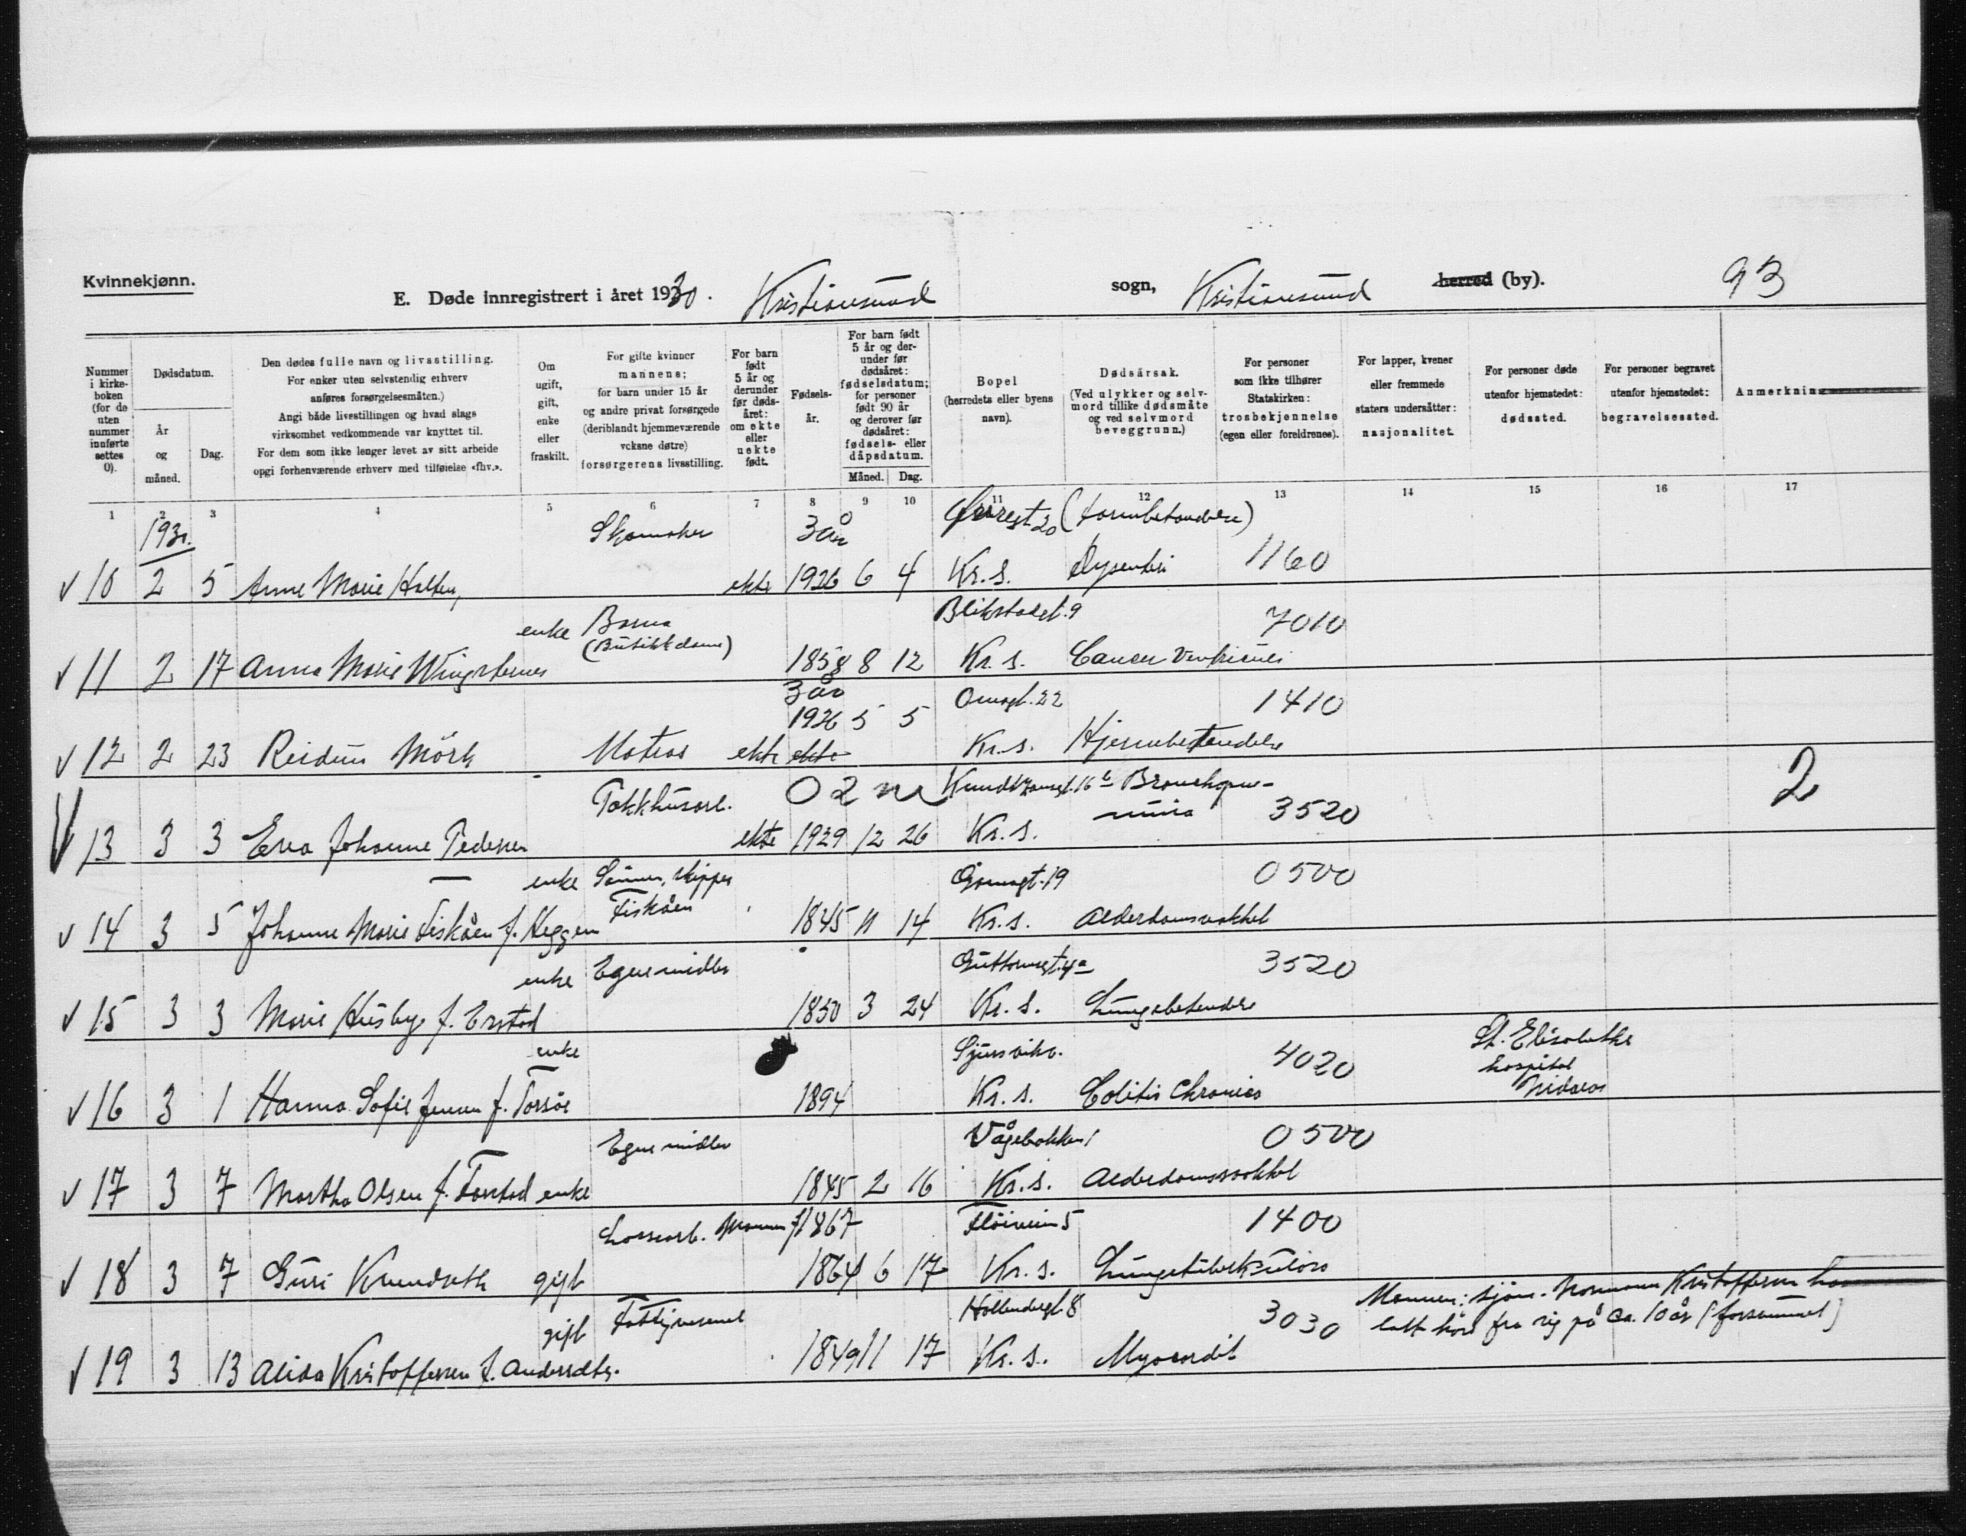 Kvinnekjønn.
E. Døde innregistrert i året 1930. Kristiansund sogn, Kristiansund herred (by). 93
Nummer i kirkeboken (for de uten nummer innførte settes 0).
Dødsdatum.
År og måned.
Dag.
Den dødes fulle navn og livsstilling.
For enker uten selvstendig erhverv anføres forsørgelsesmåten.)
Angi både livsstillingen og hvad slags virksomhet vedkommende var knyttet til.
For dem som ikke lenger levet av sitt arbeide opgi forhenværende erhverv med tilføielse «fhv.».
Om ugift, gift, enke eller fraskilt.
For gifte kvinner mannens; for barn under 15 år og andre privat forsørgede (deriblandt hjemmeværende voksne døtre) forsørgerens livsstilling.
For barn født 5 år og derunder før dødsåret: om ekte eller uekte født.
Fødselsår.
For barn født 5 år og derunder før dødsåret: fødselsdatum; for personer født 90 år og derover før dødsåret: fødsels- eller dåpsdatum.
Måned. Dag.
Bopel (herredets eller byens navn).
Dødsårsak.
(Ved ulykker og selvmord tillike dødsmåte og ved selvmord beveggrunn.)
For personer som ikke tilhører Statskirken: trosbekjennelse (egen eller foreldrenes).
For lapper, kvener eller fremmede staters undersåtter: nasjonalitet.
For personer døde utenfor hjemstedet: dødssted.
For personer begravet utenfor hjemstedet: begravelsessted.
Anmerkning
1 2 3 4 5 6 7 8 9 10 11 12 13 14 15 16 17
1930. Skomaker 3 år
10 2 5 Anne Marie Holten, ekte 1926 6 4 Kr. S. Dysenteri 1160
enke (Butikkdame) 7010
11 2 17 Anna Marie 1858 8 12 Kr. s. Cancer Ventriculi
3 år 1410
1926 5 5
12 2 23 Reidun Mörk ekte ekte Kr. s. Hjernebetendelse
0 2 m Bronchopneu- 2
13 3 3 Eva Johanne Pedersen ekte 1929 12 26 Kr. s. monia 3520
enke skipper 0500
Fiskåen
14 3 5 Johanne Marie Fiskåen f. Heggem 1845 11 14 Kr. s. Alderdomssvakhet
enke Egne midler 3520
15 3 3 Marie Husby f. 1850 3 24 Kr. s. Lungebetendelse
enke 4020 St. Elisabeths
hospital
Nidaros
16 3 1 Hanna Sofie Jensen f. 1894 Kr. s. Colitis Chronica
Egne midler 0500
17 3 7 Martha Olsen f. enke 1845 2 16 Kr. s. Alderdomssvakhet
Mannen f. 1867 Flöiveien 5 1400
18 3 7 Guri gift 1864 6 17 Kr. s. Lungetuberkulose
gift Fattigvesenet 3030 Mannen: Kristoffersen har
latt höre fra sig på ca. 10 år (forsvunnet)
19 3 13 Alida Kristoffersen f. Andersdtr. 1849 11 17 Kr. s. Myocardit